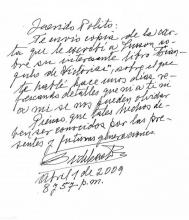 Querido Polito:
Te envío copia de la car-
ta que le escribí a Susan so-
bre su interesante libro "Trián-
gulo de Historias", sobre el que
te hablé hace unos días re-
frescando detalles que ni a ti ni
a mí se nos pueden olvidar.
Pienso que tales hechos de-
ben ser conocidos por las pre-
sentes y futuras generaciones
Abril 1 de 2009
8 y 57 p.m.